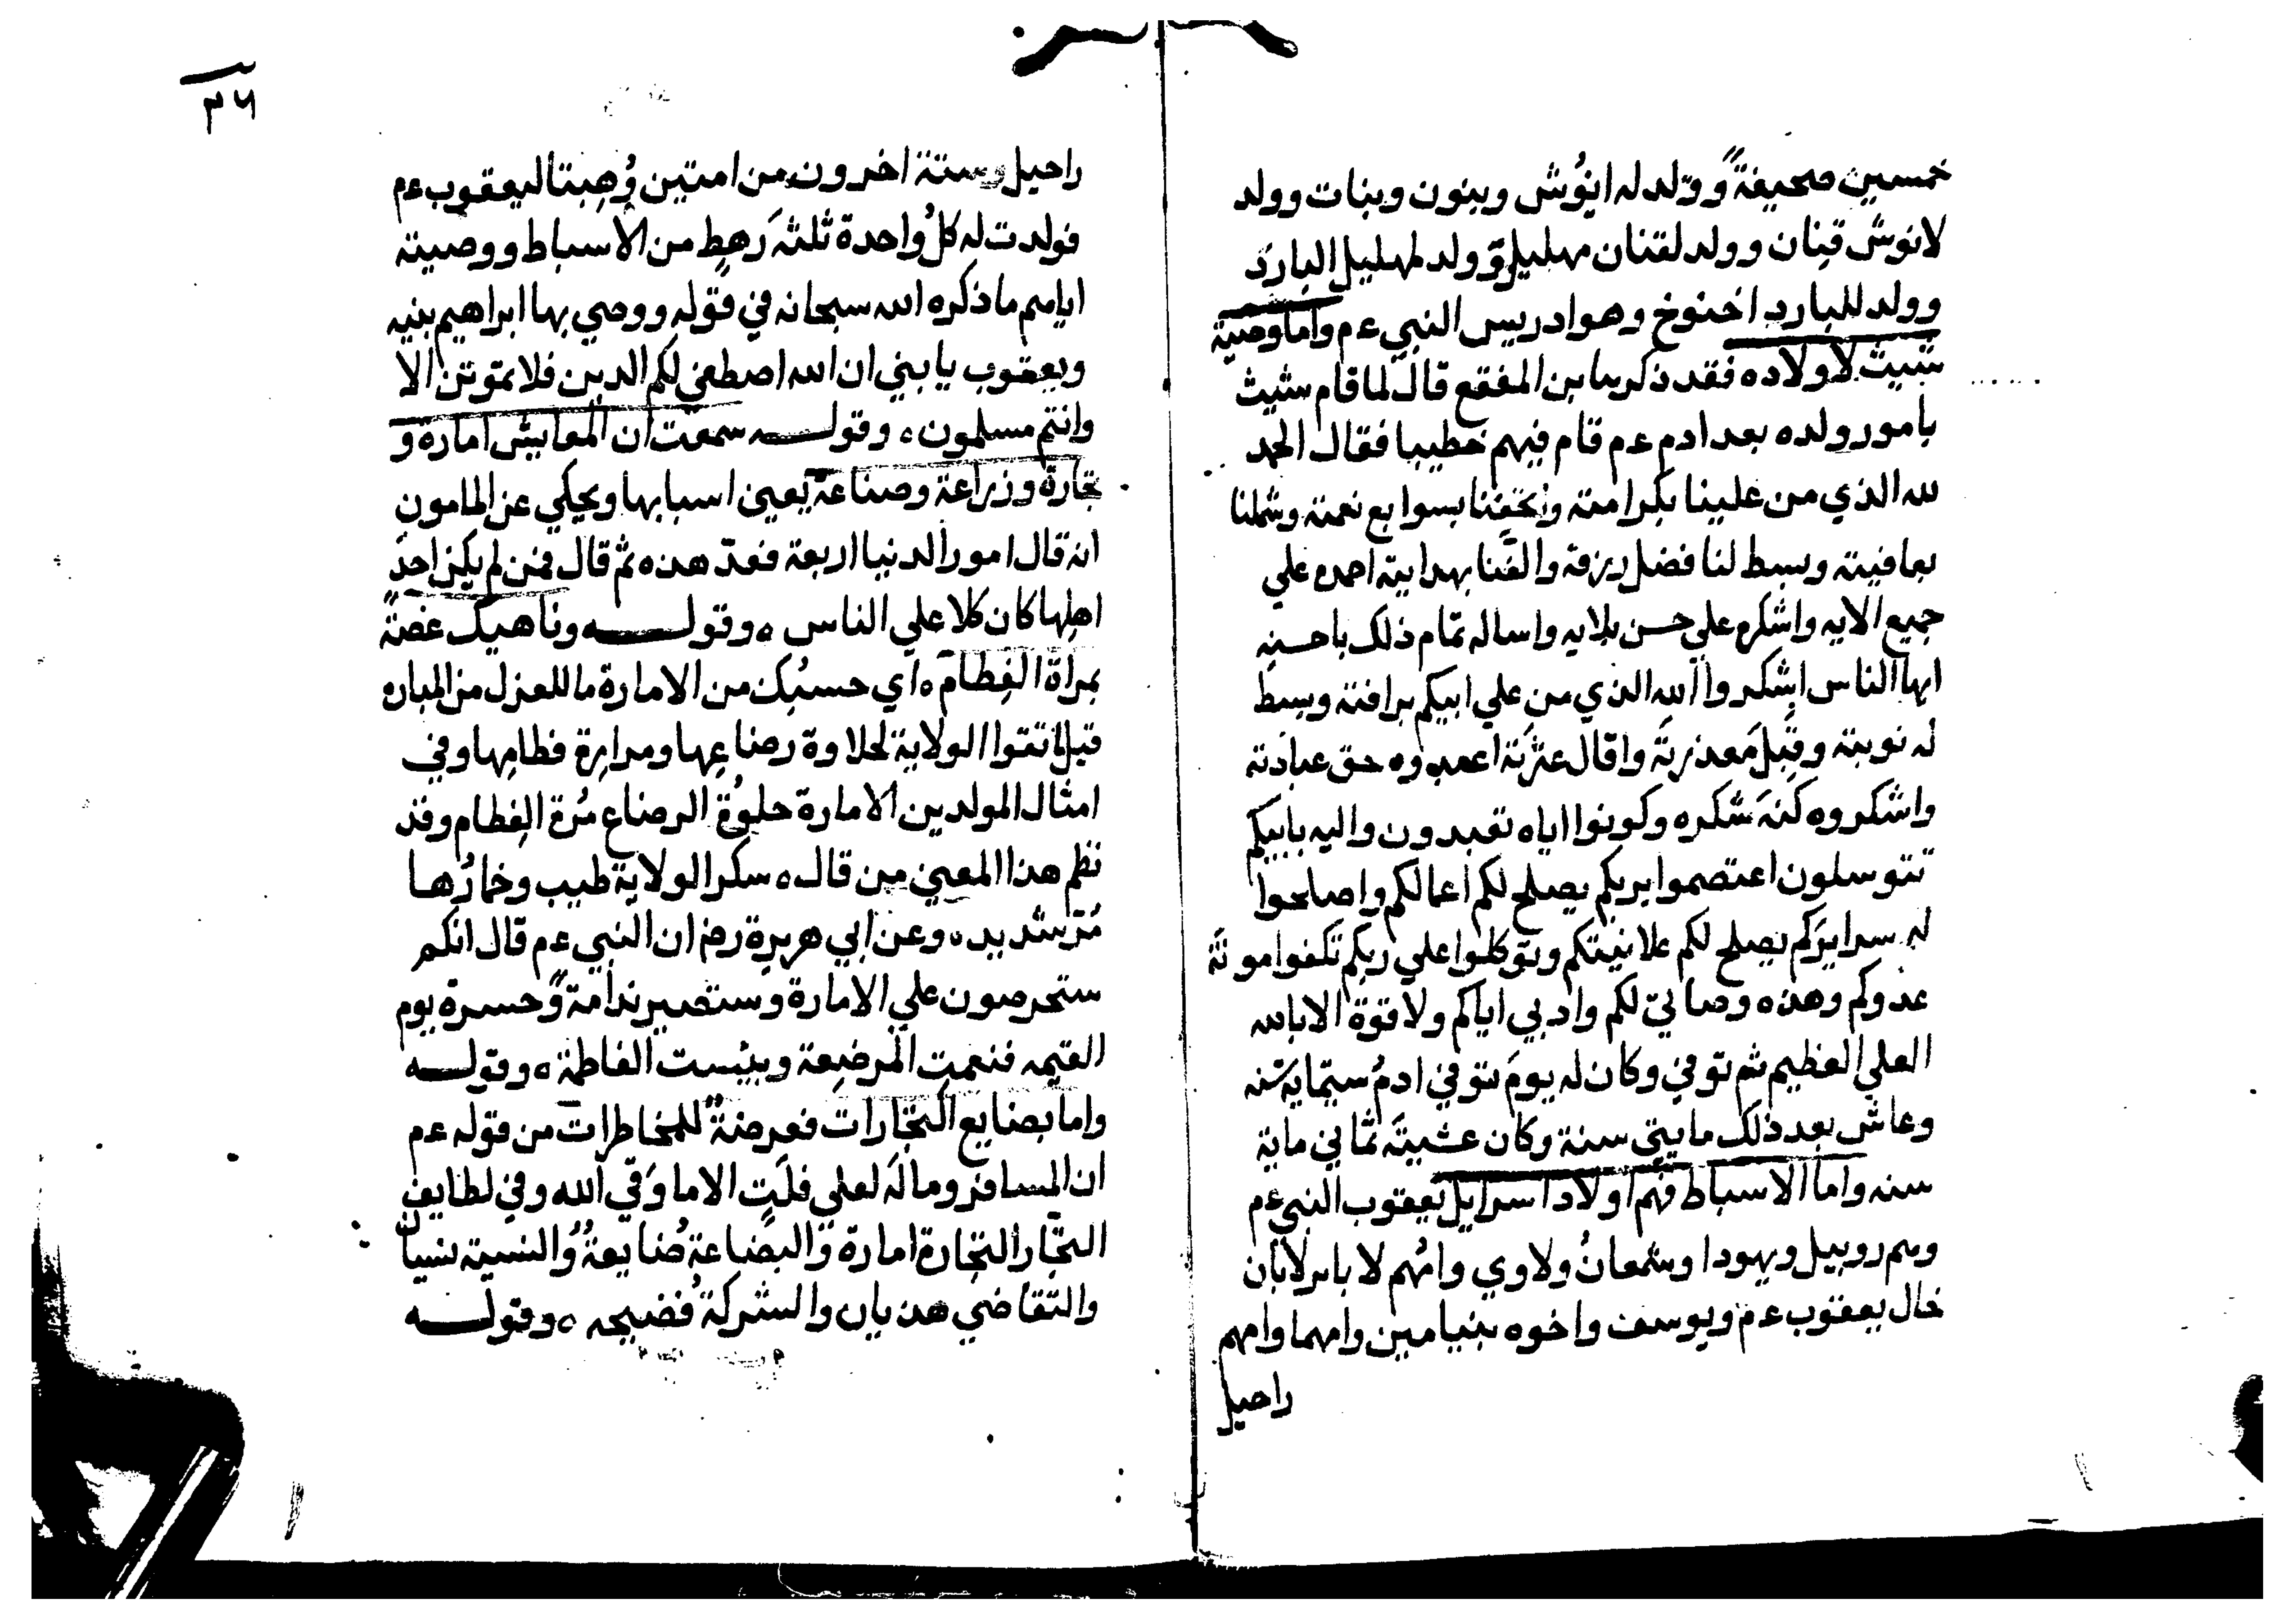 خمسين صحيفةً وولد له انوُش وبنون وبنات وولد
لانوش قينان وولد لقنان مهليل وولد لمهليل اليارد
وولد لليارد اخنوخ وهو ادريس النبي ءم واما وصية
شيث لاولاده فقد ذكرها بن المقفع قال لما قام شيث
بامور ولده بعد ادم ءم قام فيهم خطيبا فقال الحمد
لله الذي من علينا بكرامته واتحفنا بسوابغ نعمته وشملنا
بعافيته وبسط لنا فضل رزقه والفنا بهدايته احمده علي
جميع الايه واشكره علي حسن بلايه واساله تمام ذلك باحسنه
ايها الناس اشكروا الله الذي من علي ابيكم برافته وبسط
له توبته وقبل معذرته واقال عثرته اعبدوه حق عبادته
واشكروه كنه شكره وكونوا اياه تعبدون واليه بابيكم
تتوسلون اعتصموا بربكم يصلح لكم اعمالكم واصلحوا
له سرايركم يصلح لكم علانيتكم وتوكلوا علي ربكم تكفوا مونة
عدوكم وهذه وصاتي لكم وادبي اياكم ولا قوة الا بالله
العلي العظيم ثم توفي وكان له يوم توفي ادمُ ستماية سنه
وعاش بعد ذلك مايتي سنة وكان عشيته ثماني ماية
سنه واما الاسباط فهم اولاد اسرايل يعقوب النبي ءم
وهم روبيل ويهودا وشمعان ولاوي وامهم لايا بر لابان
خال يعقوب ءم ويوسف واخوه بنيامين وامهما وامهم
راحيل
٣٦
راحيل وستة اخرون من امتين وُهِبتا ليعقوب ءم
فولدت له كلُ واحدة ثلثة رهطٍ من الاسباط ووصيته
اياهم ما ذكره الله سبحانه في قوله ووصي بها ابراهيم بنيه
ويعقوب يا بني ان الله اصطفي لكم الدين فلا تموتن الا
وانتم مسلمون ه وقولـــه سمعت ان المعايش امارة و
تجارة وزراعة وصناعة يعين اسبابها ويحكي عن المامون
انه قال امور الدنيا اربعة فعدّ هذه ثم قال فمن لم يكن احدَ
اهلها كان كلا علي الناس ه وقولـــه وناهيك غصةً
بمراة الفِطام ه اي حسبُك من الامارة ما للعزل من المباره
قيل ما تفوا الولاية لحلاوة رضاعِها ومرارة فطامِها وفي
امثال المولدين الامارة حلوُة الرضاع مُرة الفِطام وقد
نظم هذا المعني من قال ه سكر الولاية طيب وخمارُها
مُرّ شديد ه وعن ابي هريرة رض ان النبي ءم قال انكم
ستحرصون علي الامارة وستصير ندامة وحسرة يوم
القيمه فنعمت المرضِعة وبيست الفاطمة ه وقولـــه
واما بضايع التجارات فعرضةٌ للمخاطرات من قوله ءم
ان المسافر وماله لعلي قلَتٍ الا ما وَقي الله وفي لطايف
التجّار التجارة امارة والبضاعة ضُايعة والنسية نسيان
والتقاضي هذيان والشركة فضيحه ه وقولـــه